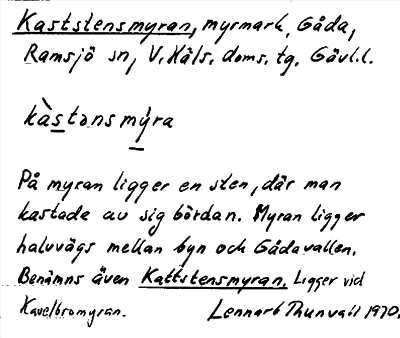 Kaststensmyran, myrmark, Gåda,
Ramsjö sn, V. Häls. doms. tg, Gävl.l.
kàstənsmy̌ra
På myran ligger en sten, där man
kastade av sig bördan. Myran ligger
halvvägs mellan byn och Gådavallen.
Benämns även Kattstensmyran. Ligger vid
Kavelbromyran. Lennart Thunvall 1970.